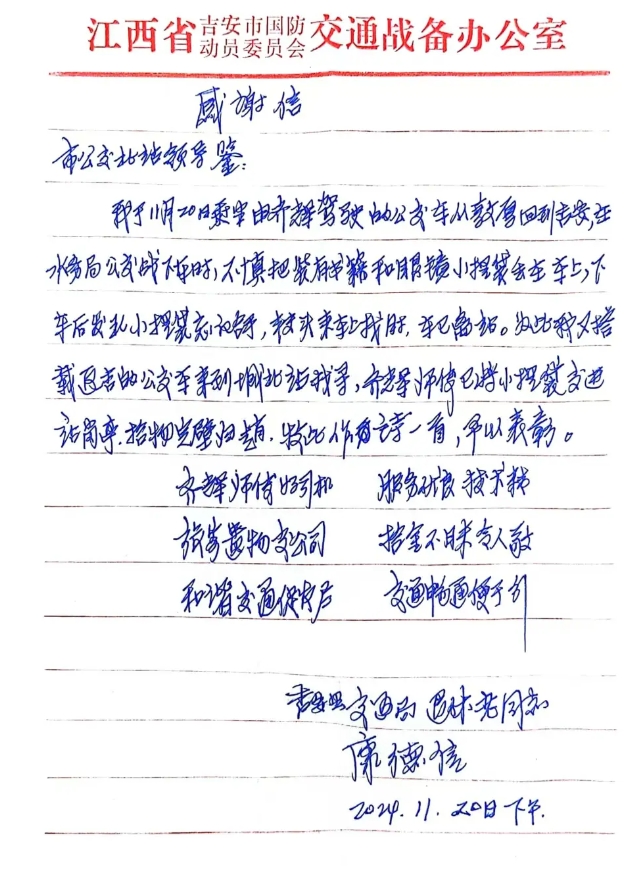 江西省吉安市国防动员委员会交通战备办公室
感谢信
市公交北站领导鉴:
我于11月20日乘坐由齐辉驾驶的公交车从敦厚回到吉安,在
水务局公交战下车时,不慎把装有书籍和眼镜小提袋丢在车上,下
车后发现小提袋忘记拿,被头来车上找时,车已离站。为此我又搭
载返吉的公交车来到城北站找寻,齐辉师傅已将小提袋交进
站岗亭.拾物完璧归赵.特此作诗一首,予以表彰。
齐辉师傅好司机 服务优良技术精
旅客遗物交公司 拾金不昧令人敬
和谐交通保方后 交通畅通便于行
吉安县交通局退休老同志
康德信
2024.11.20日下午.